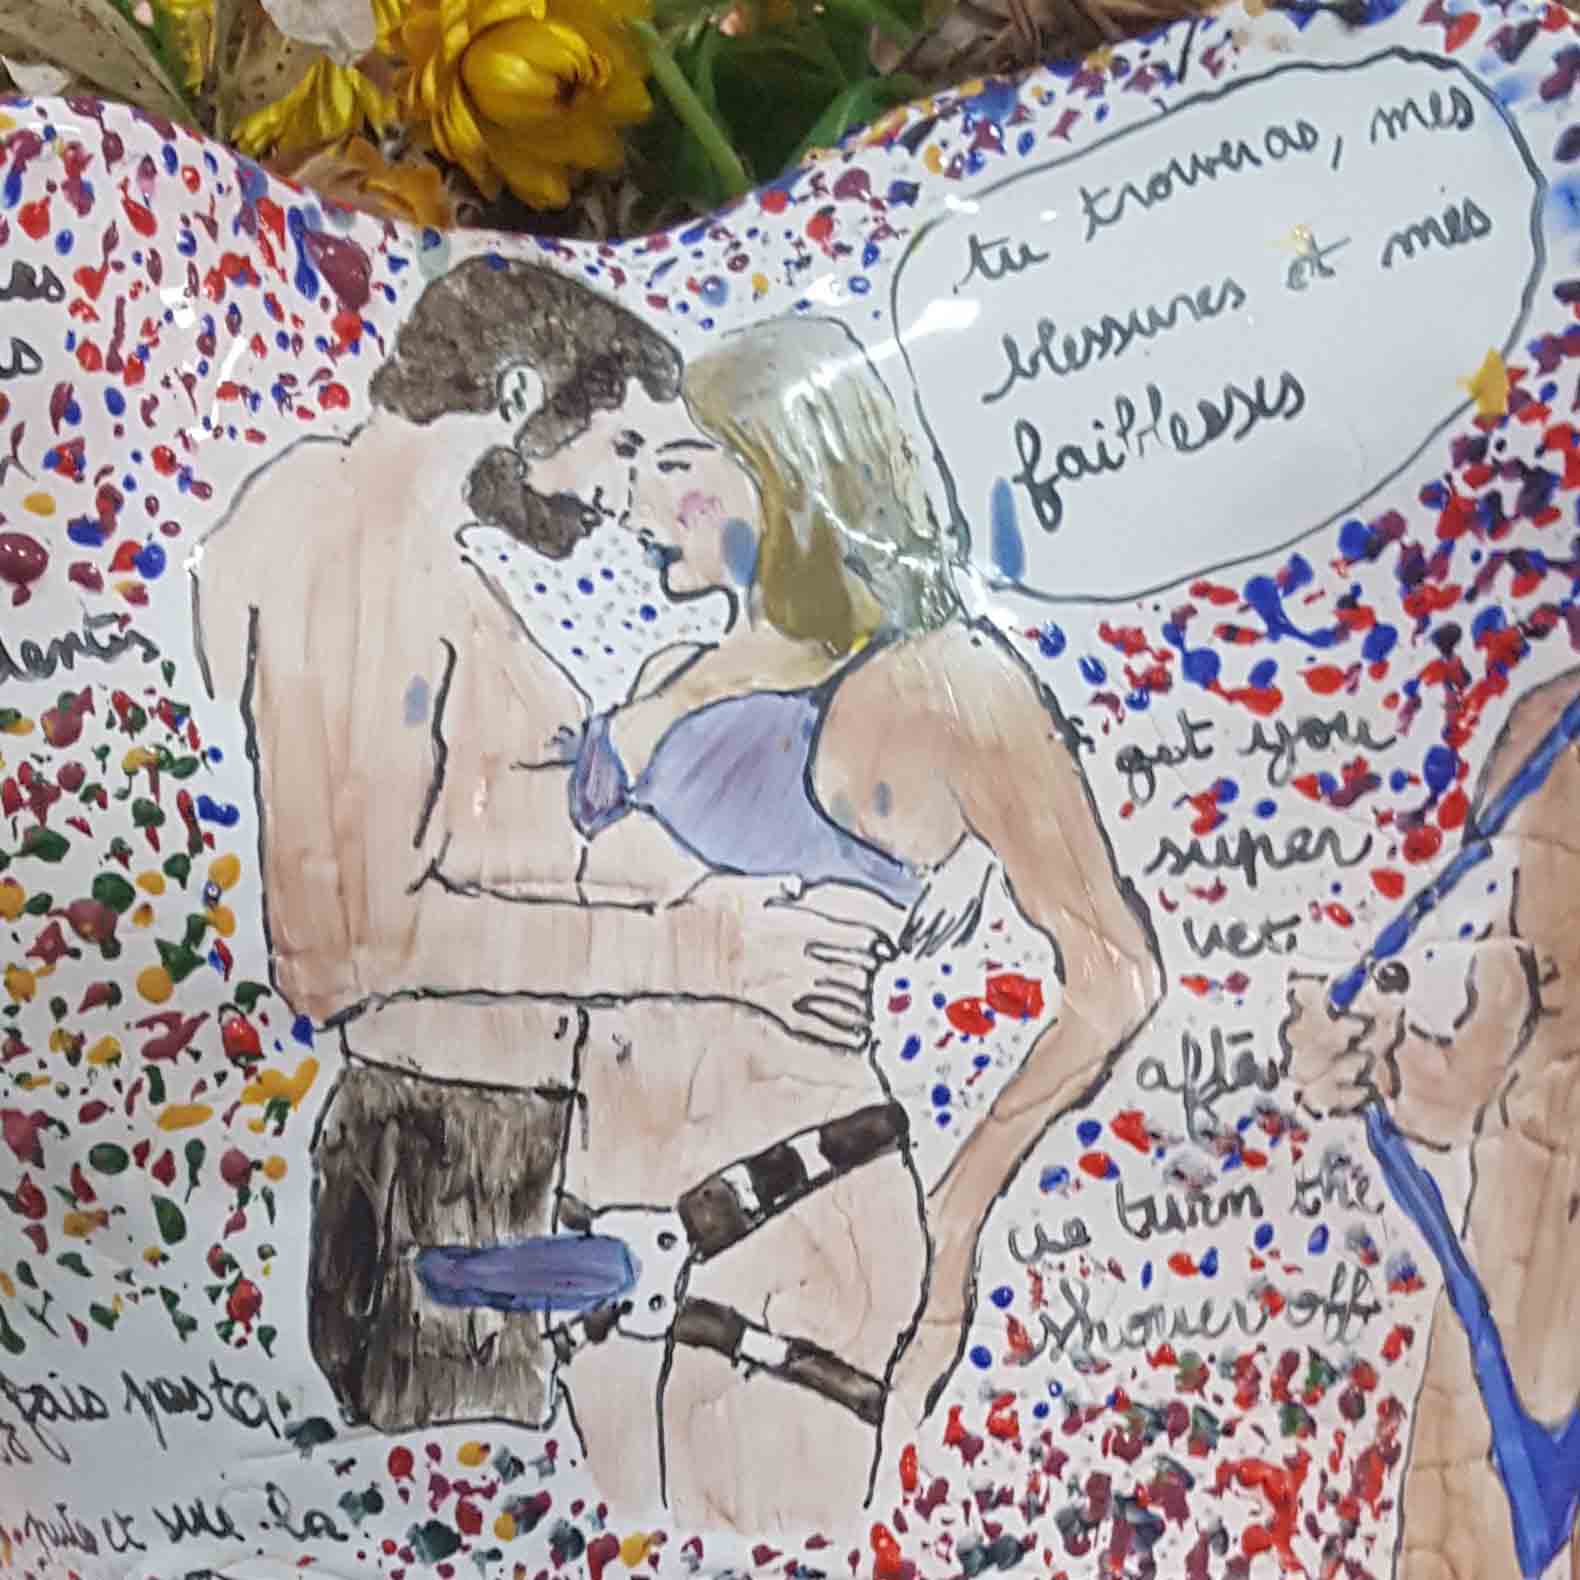 tu trouveras, mes
blessures et mes
faiblesses
get you
super
wet
after
we turn the
shower off
fais pas ta